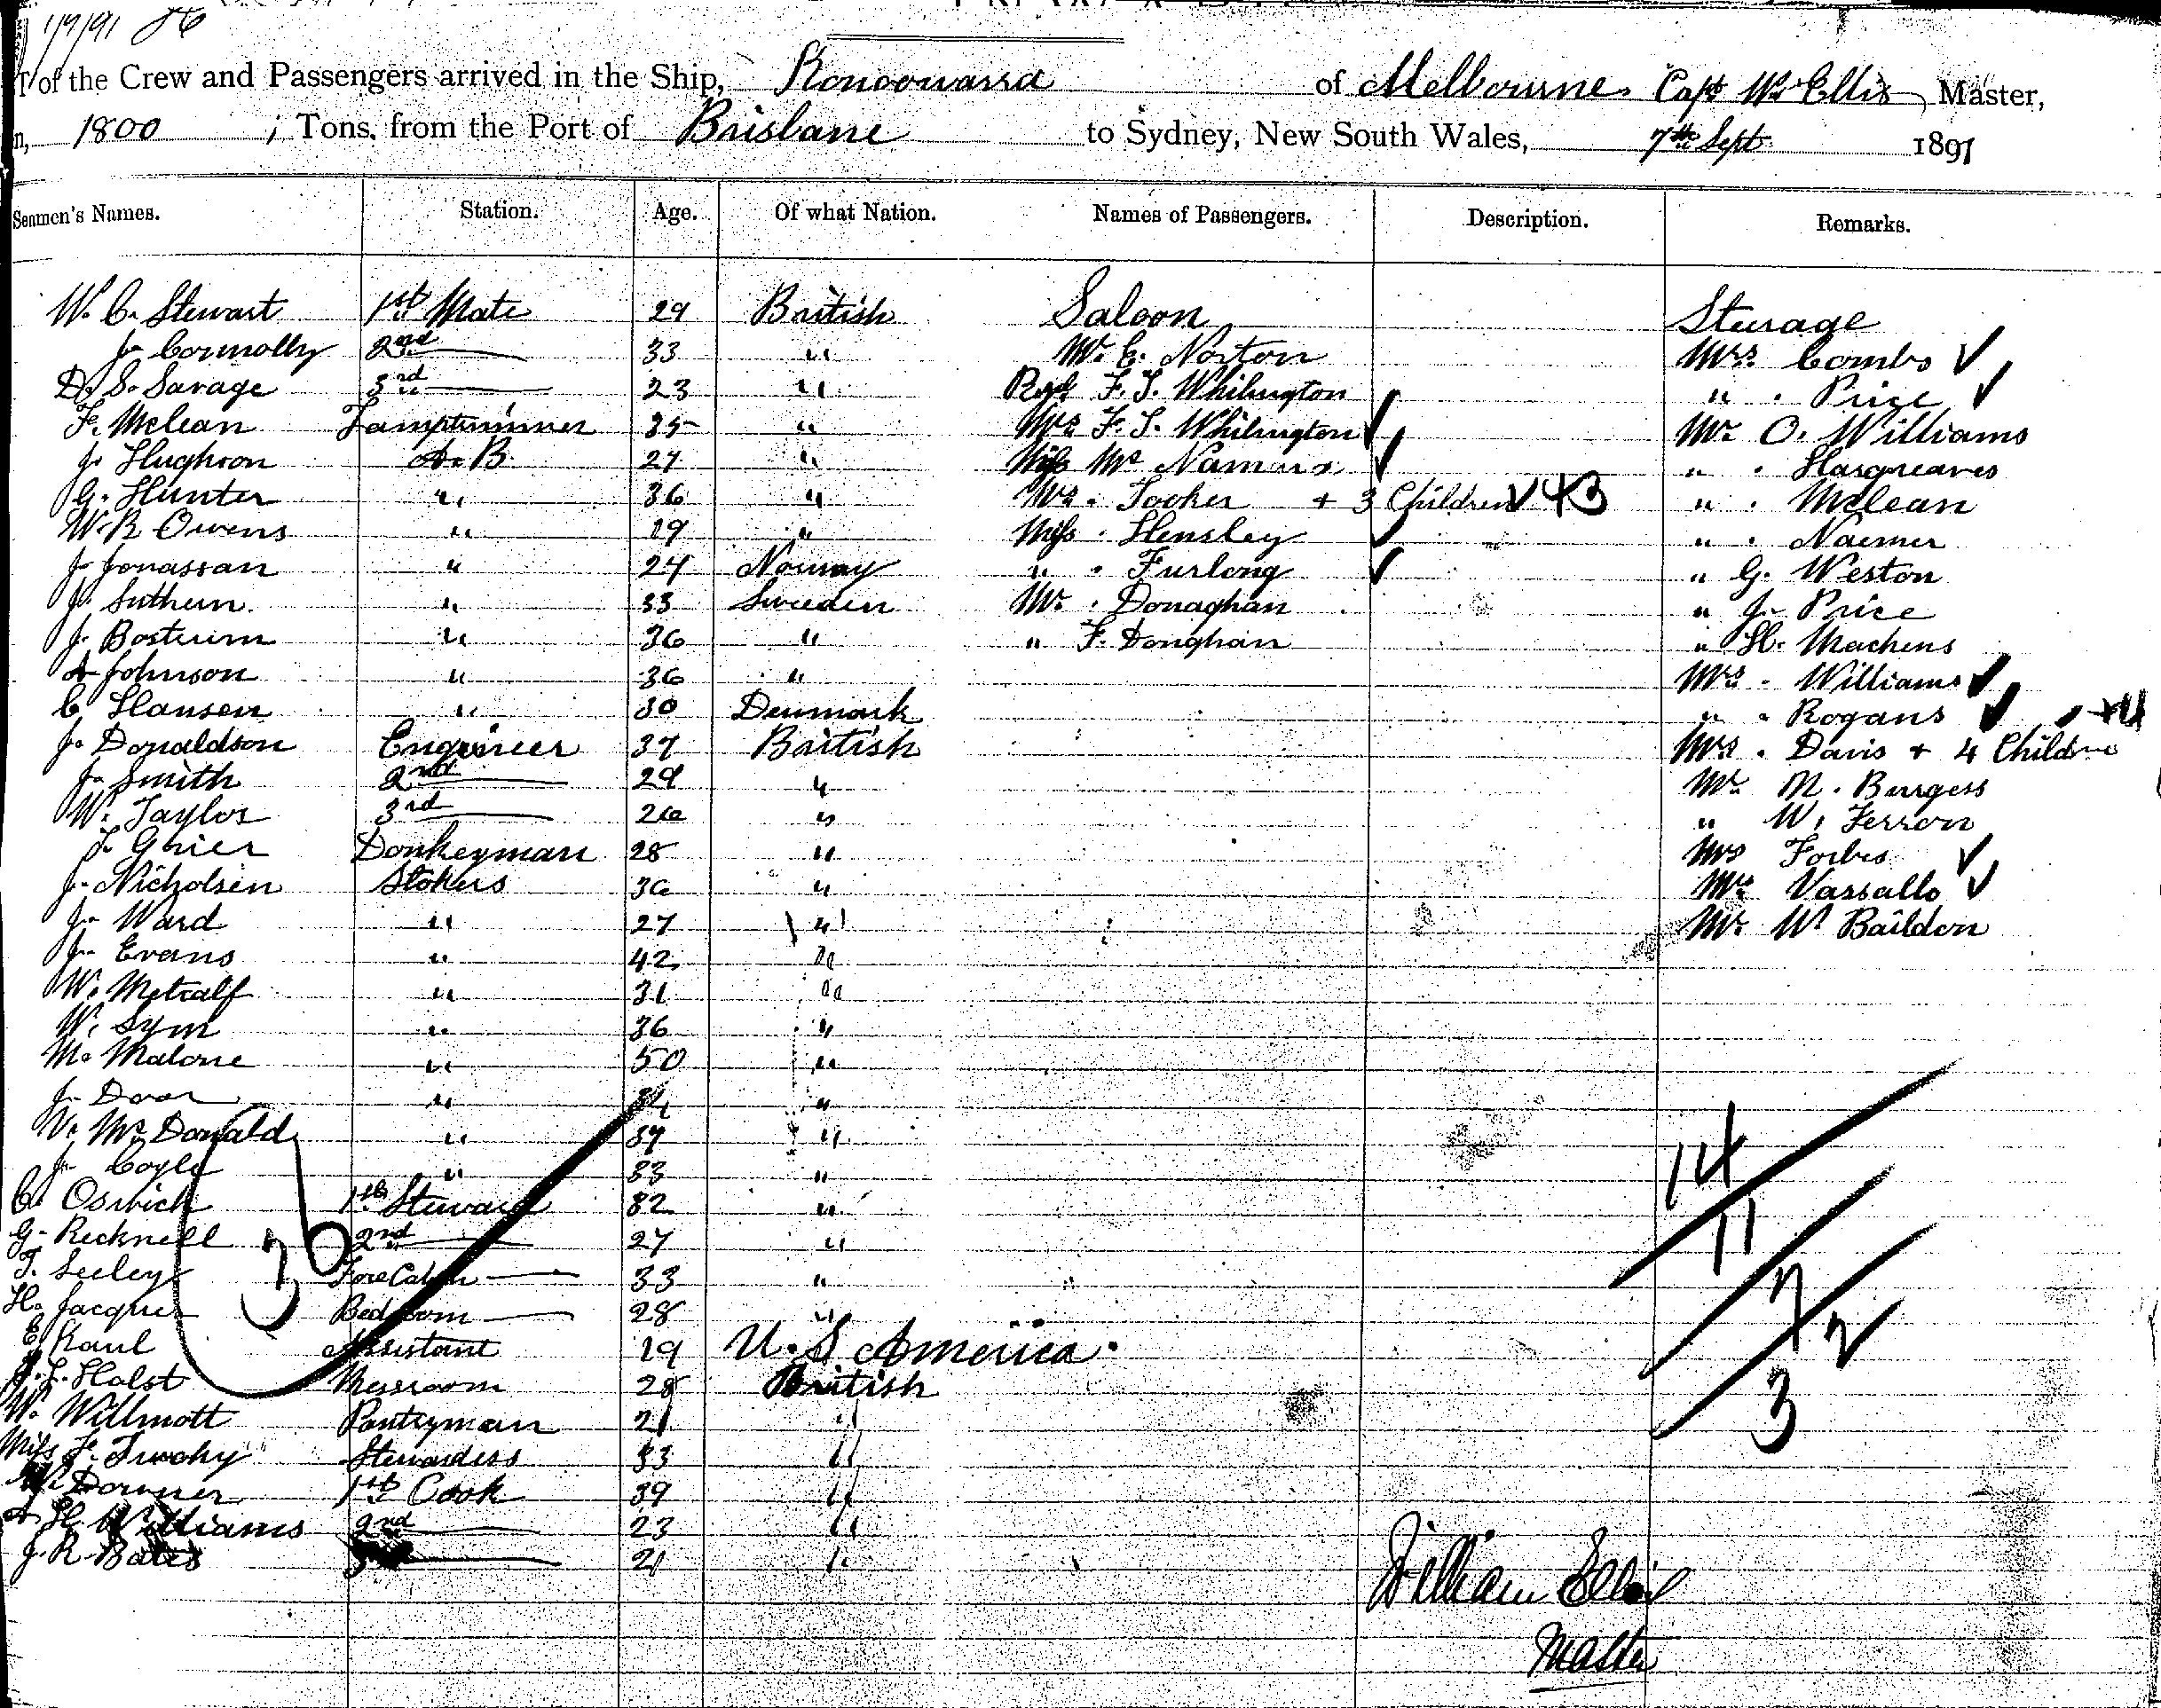 1/9/91 86
T of the Crew and Passengers arrived in the Ship, Konoowarra of Melbourne. Capt Wm Ellis, Master,
n, 1800 ; Tons, from the Port of Brisbane to Sydney, New South Wales, 7th Sept 1891
Seamen's Names. Station. Age. Of what Nation. Names of Passengers. Description. Remarks.
W. C. Stewart 1st Mate 29 British Saloon Sturage
J. Connolly 2nd 33 " Mr. C. Norton Mrs. Combs
D. S. Savage 3rd 23 " Revd F. T. Whitington " . Price
F. Mclean Lamptrimmer 35 " Mrs F. T. Whitington Mr. O. Williams
J. Hughson A.B. 27 " Miss Mc Namara " . Hargreaves
G. Hunter " 36 " Mrs. Tooker + 3 Children +3 " . Mclean
W. R Owens " 19 " Miss . Hensley " .
J. Jonassan " 24 Norway " . Furlong " G. Weston
J. Suthern. " 33 Sweden Mr. . Donaghan " J. Price
J. Bostrum " 36 " " F. Donghan " H. Machens
A Johnson " 36 " Mrs . Williams
C. Hansen " 30 Denmark " . Rogans +4
J. Donaldson Engineer 37 British Mrs . Davis + 4 Children
J. Smith 2nd 29 " Mr. M. Burgess
W. Taylor 3rd 26 " " W. Ferron
T. Grier Donkeyman 28 " Mrs Forbes
J. Nicholsen Stokers 36 " Mrs Vassallo
J. Ward " 27 " Mr. W. Baildon
J. Evans " 42 "
W. Metcalf " 31 "
W. Sym " 36 "
M. Malone " 50 "
J. Door " 34 "
W. McDonald " 37 " 14
J. Coyle " 33 "
C. Osrich 1st Steward 32 " 11
G. Recknell 2nd 27 "
T. Seeley Fore Cabin 33 " 7
H. Jacques Bedroom 28 " 2
E. Kaul Assistant 19 U. S. America.
J. T. Holst Messroom 28 British 3
W. Willmott Pantryman 21 "
Miss F. Twohy Stewardess 33 "
W. Downer 1st Cook 39 "
A. H. Williams 2nd 23 "
J. R. Bates 3rd 21 "
36
William Ellis
Master